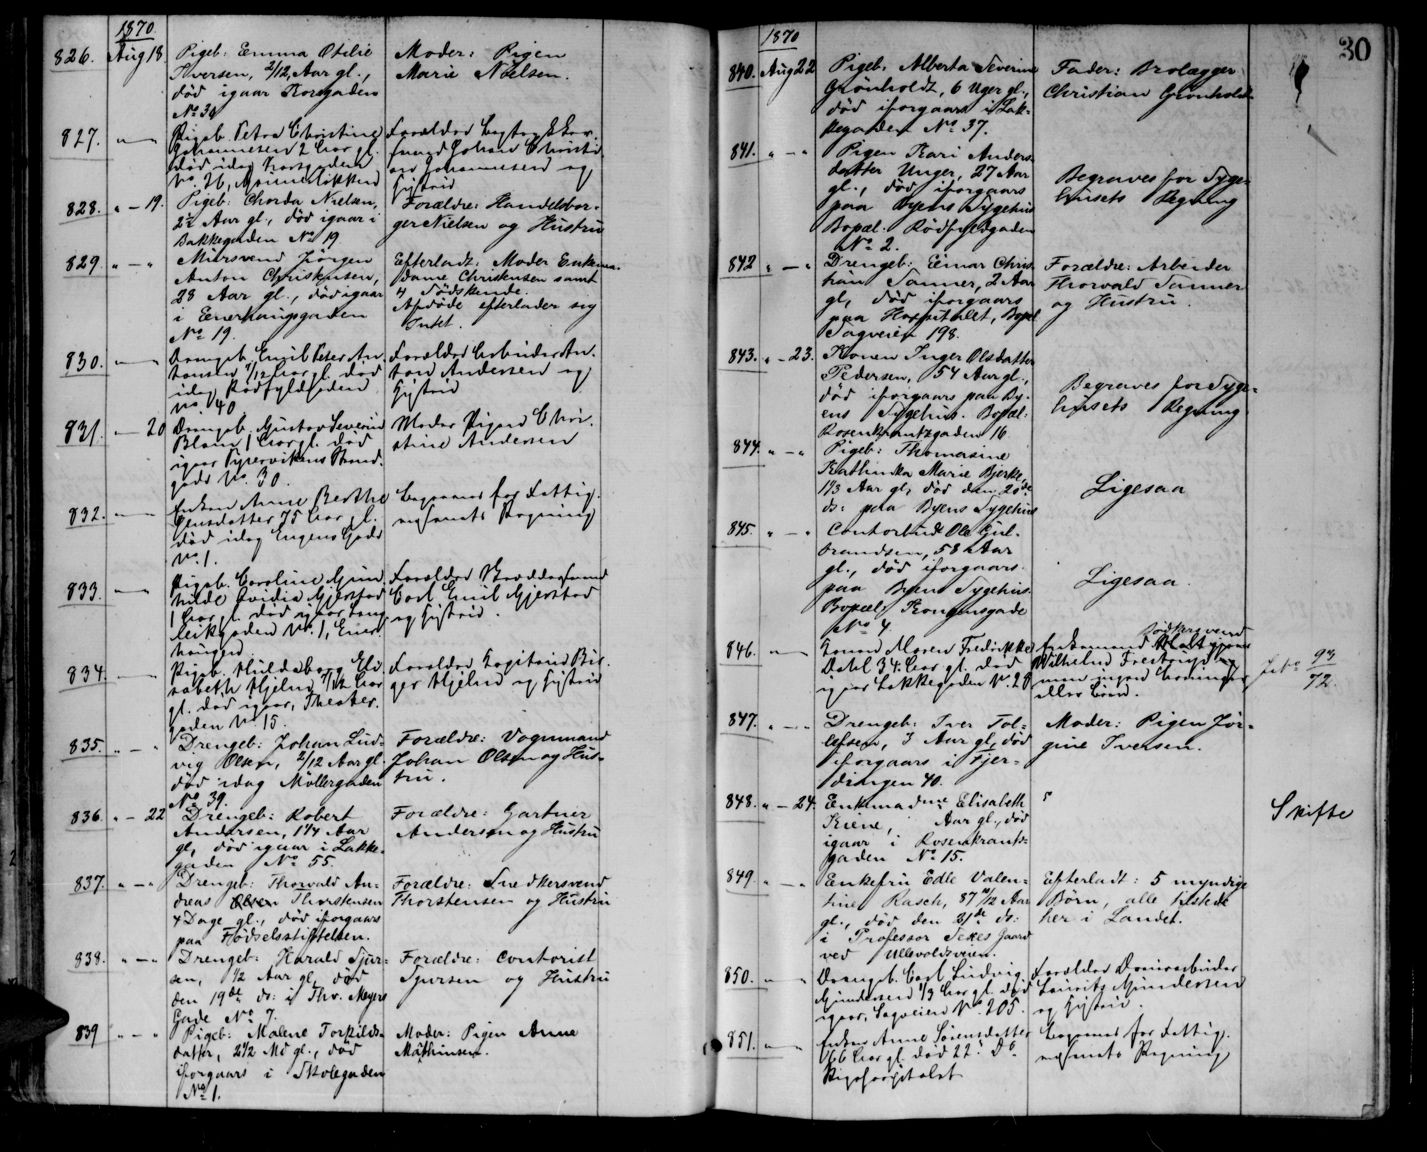 1870
826. Aug 18. Pigeb: Emma Otilie
Iversen, 2/12 Aar gl.,
død igaar Korsgaden
No 30
Moder: Pigen
Marie Nielsen.
827. — Pigeb. Petra Christine
Johannesen 2 Aar gl.
død idag Korsgaden
No. 26,
Forældre
Johannesen og
Hustru
828. " — 19. Pigeb: Thorda Nielsen,
2½ Aar gl., død igaar i
Bakkegaden No 19
Forældre: Handelsbor-
ger Nielsen og Hustru
829 " — " Mursvend Jörgen
Anton Christensen,
28 Aar gl., død igaar
i Enerhaugsgaden
No 19.
Efterladt: Moder Enkema-
dame Christensen samt
4 Södskende.
Afdøde efterlader sig
Intet.
830. — Drengeb. Emil Peter An-
tonsen 7/12 Aar gl. død
idag Rødfyldgaden
No. 40
Forældre Arbeider An-
ton Andersen og
Hustru
831. — 20 Drengeb. Gustav Severin
Blom 1 Aar gl. død
igaar Pipervikens Strand-
gade No. 30.
Moder Pigen Chri-
stine Andersen
832. — Enken Anne Berthe
Jensdatter 75 Aar gl.
død idag Eugens Gade
No. 1.
Begraves for Fattig-
væsenets Regning
833. — Pigeb. Caroline Gun-
hilde Ovidia Gjerstad
1 Aar gl. død igaar Lang-
leikgaden No. 1, Ener-
haugen
Forældre
Carl Emil Gjerstad
og Hustru.
834. — Pigeb. Huldaborg Eli-
sabeth Hjelm 7/12 Aar
gl. død igaar, Theater-
gaden No 15.
Forældre Kaptein Bir-
ger Hjelm og Hustru
835. " — " Drengeb: Johan Lud-
vig Olsen, 2/12 Aar gl.
død idag Møllergaden
No 39.
Forældre: Vognmand
Johan Olsen og Hus-
tru.
836. " — 22 Drengeb: Robert
Andersen, 1¼ Aar
gl, død igaar i Lakke-
gaden No 55.
Forældre: Gartner
Andersen og Hustru
837. " — " Drengeb: Thorvald An-
dreas Thorstensen
4 Dage gl., død iforgaars
paa Fødselsstiftelsen.
Forældre: Snedkersvend
Thorstensen og Hustru
838. " — " Drengeb: Harald Sjur-
sen, ½ Aar gl, død
den 19de ds: i Thv. Meyers
Gade No 7.
Forældre: Contorist
Sjursen og Hustru
839 " — " Pigeb: Malene Torkilds-
datter, 2½ Md gl., død
iforgaars i Skolegaden
No 1.
Moder: Pigen Anne
Mathiusen.
30
1870
840. Aug 22 Pigeb. Alberta Severine
Grönholdt, 6 Uger gl.,
død iforgaars i Lak-
kegaden No 37.
Fader: Brolægger
Christian Grönholdt.
841. " — " Pigen Kari Anders-
datter Unger, 27 Aar
gl., død iforgaars
paa Byens Sygehus
Bopæl. Rødfyldgaden
No 2.
Begraves for Syge-
husets Regning
842 " — " Drengeb: Einar Chris-
tian Tanner, 2 Aar
gl, død iforgaars
paa Hospitalet, Bopæl
Sagveien 198.
Forældre: Arbeider
Thorvald Tanner
og Hustru.
843. " — 23. Konen Inger Olsdatter
Pedersen, 54 Aar gl.,
død iforgaars paa By-
ens Sygehus. Bopæl.
Rosenkrantzgaden 16
Begraves for Syge-
husets Regning.
844. " — " Pigeb: Thomasine
Kathinka Marie Bjerke,
1⅓ Aar gl, død den 20de
ds: paa Byens Sygehus
Ligesaa
845. " — " Contorbud Ole Gul-
brandsen, 58 Aar
gl., død iforgaars
paa Byens Sygehus.
Bopæl, Prindsensgade
No 4
Ligesaa.
846. — Maren Fredrikke
Dahl 34 Aar gl. død
igaar Lakkegaden No. 28
Bødkersvend
Wilhelm
eller Curd.
93/72.
847. " — " Drengeb: Iver Tol-
lefsen, 3 Aar gl, død
iforgaars i Fjer-
dingen 40.
Moder: Pigen Jör-
gine Iversen.
848. " — 24. Enkemadme Elisabeth
Kiene, Aar gl., død
igaar i Rosenkrants-
gaden No 15.
?
Skifte
849. " — " Enkefru Edle Valen-
tine Rasch, 87 10/12 Aar
gl., død den 21de ds:
i Professor Sexes Gaard
ved Ullevoldsveien.
Efterladt: 5 myndige
Børn, alle tilstede
her i Landet.
850. " — Drengeb. Carl Ludvig
Gundersen ⅓ Aar gl. død
igaar, Sagveien No 205.
Forældre
Lauritz Gundersen
og Hustru.
851. — Enken Anne Sörensdatter
66 Aar gl. død 22. Ds
Rigshospitalet
Begraves for Fattig-
væsenets Regning